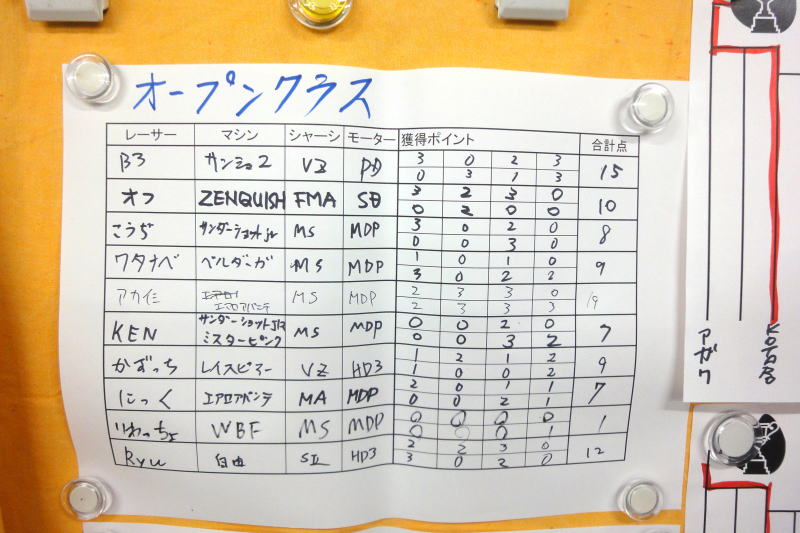 オープンクラス
レーサー マシン シャーシ モーター 獲得ポイント 合計点
B3 サンショ2 VZ PD 3 0 2 3 15
0 3 1 3
オフ ZENQUISH FMA SD 3 2 3 0 10
0 2 0 0
こうぢ サンダーショットjr MS MDP 3 0 2 0 8
0 0 3 0
ワタナベ ベルダーガ MS MDP 1 0 1 0 9
3 0 2 2
アカ仁 エアロアバンテ MS MDP 2 3 3 0 19
2 3 3 3
KEN サンダーショットJR MS MDP 0 0 2 0 7
ミスターピンク 0 0 3 2
かずっち レイスピアー VZ HD3 1 2 1 2 9
1 0 0 2
にっく エアロアバンテ MA MDP 2 0 1 1 7
0 0 2 1
いわっちょ WBF MS MDP 0 0 0 0 1
0 0 0 1
Ryu 自由 SII HD3 2 2 3 0 12
3 0 2 0
アガワ
KOTARO